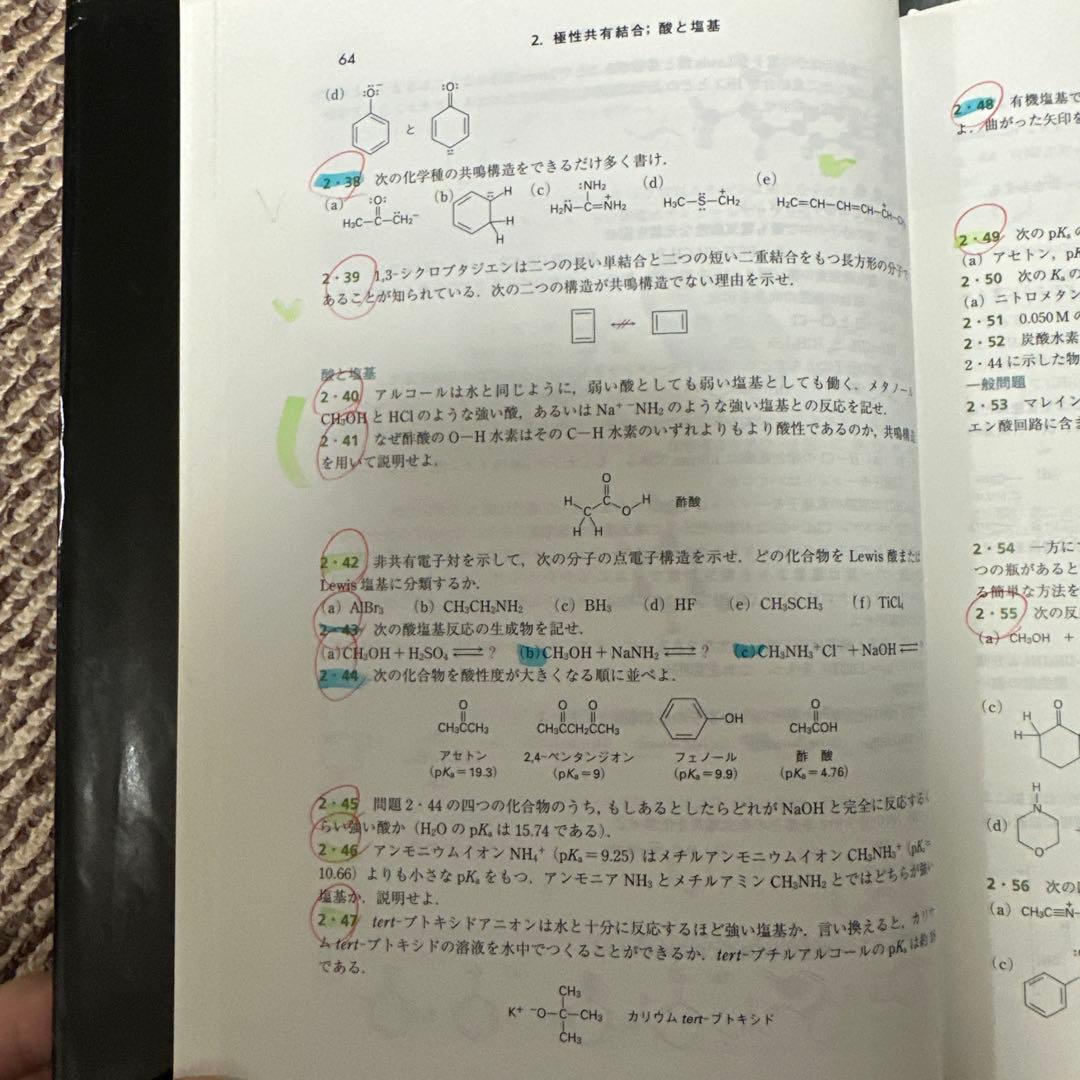 2. 極性共有結合; 酸と塩基
64
(d) :Ö:⁻ と :O:
2・38 次の化学種の共鳴構造をできるだけ多く書け.
(a) (b) (c) (d) (e)
:O:
H₃C—C—C̈H₂⁻
H
H
H
:NH₂
H₂N̈—C=N⁺H₂
H₃C—S̈—C⁺H₂
H₂C=CH—CH=CH—C⁺H—
2・39 1,3-シクロブタジエンは二つの長い単結合と二つの短い二重結合をもつ長方形の分子で
あることが知られている. 次の二つの構造が共鳴構造でない理由を示せ.
酸と塩基
2・40 アルコールは水と同じように, 弱い酸としても弱い塩基としても働く. メタノール
CH₃OH と HCl のような強い酸, あるいは Na⁺ ⁻NH₂ のような強い塩基との反応を記せ.
2・41 なぜ酢酸の O−H 水素はその C−H 水素のいずれよりもより酸性であるのか, 共鳴構造
を用いて説明せよ.
O
H C H
C O
H H
酢酸
2・42 非共有電子対を示して, 次の分子の点電子構造を示せ. どの化合物を Lewis 酸または
Lewis 塩基に分類するか.
(a) AlBr₃ (b) CH₃CH₂NH₂ (c) BH₃ (d) HF (e) CH₃SCH₃ (f) TiCl₄
2・43 次の酸塩基反応の生成物を記せ.
(a) CH₃OH + H₂SO₄ ⇌ ? (b) CH₃OH + NaNH₂ ⇌ ? (c) CH₃NH₃⁺Cl⁻ + NaOH ⇌ ?
2・44 次の化合物を酸性度が大きくなる順に並べよ.
O O O O
CH₃CCH₃ CH₃CCH₂CCH₃ OH CH₃COH
アセトン 2,4-ペンタンジオン フェノール 酢 酸
(pKₐ=19.3) (pKₐ=9) (pKₐ=9.9) (pKₐ=4.76)
2・45 問題 2・44 の四つの化合物のうち, もしあるとしたらどれが NaOH と完全に反応するく
らい強い酸か (H₂O の pKₐ は 15.74 である).
2・46 アンモニウムイオン NH₄⁺ (pKₐ=9.25) はメチルアンモニウムイオン CH₃NH₃⁺ (pKₐ=
10.66) よりも小さな pKₐ をもつ. アンモニア NH₃ とメチルアミン CH₃NH₂ とではどちらが強い
塩基か. 説明せよ.
2・47 tert-ブトキシドアニオンは水と十分に反応するほど強い塩基か. 言い換えると, カリウ
ム tert-ブトキシドの溶液を水中でつくることができるか. tert-ブチルアルコールの pKₐ は約 18
である.
CH₃
K⁺ ⁻O—C—CH₃ カリウム tert-ブトキシド
CH₃
2・48 有機塩基で
よ. 曲がった矢印を
2・49 次の pKₐ の
(a) アセトン, pK
2・50 次の Kₐ の
(a) ニトロメタン
2・51 0.050 M の
2・52 炭酸水素
2・44 に示した物
一般問題
2・53 マレイン
エン酸回路に含ま
2・54 一方に
つの瓶があると
る簡単な方法を
2・55 次の反
(a) CH₃OH +
(c) O
H
H
(d) H
N
O
2・56 次の
(a) CH₃C≡N⁺—
(c)